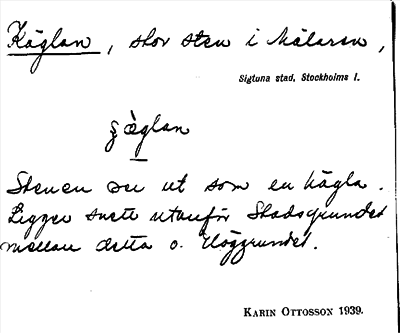 Käglan, stor sten i Mälaren,
Sigtuna stad, Stockholms l.
§ æ̀glan
Stenen ser ut som en kägla.
Ligger snett utanför Stadsgrundet
mellan detta o. Höggrundet.
KARIN OTTOSSON 1939.